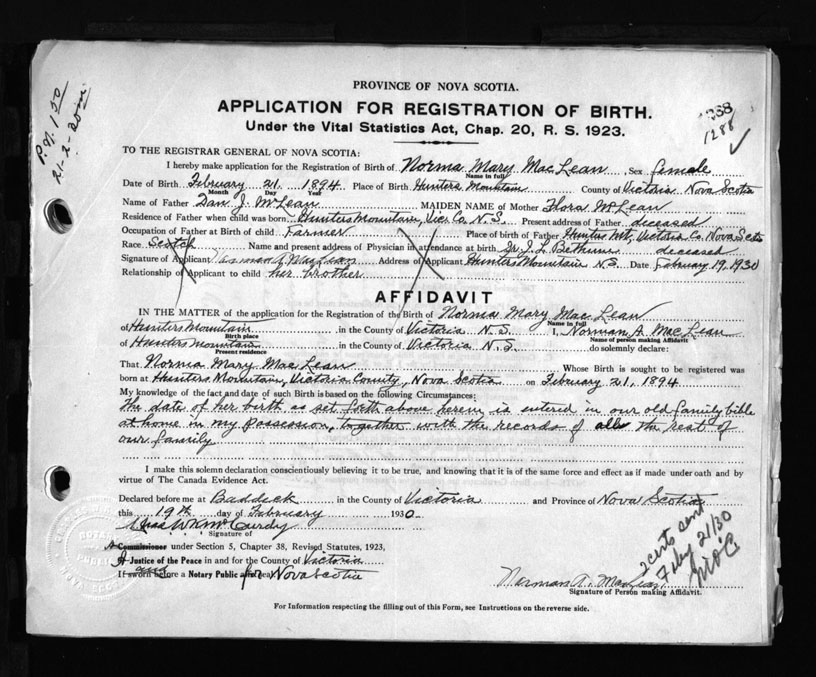 PROVINCE OF NOVA SCOTIA.
APPLICATION FOR REGISTRATION OF BIRTH.
Under the Vital Statistics Act, Chap. 20, R. S. 1923.
1288
TO THE REGISTRAR GENERAL OF NOVA SCOTIA:
I hereby make application for the Registration of Birth of Norma Mary MacLean Sex female
Name in full
Date of Birth February 21. 1894 Place of Birth Hunters Mountain County of Victoria Nova Scotia
Month Day Year
Name of Father Dan J. McLean MAIDEN NAME of Mother Flora McLean
Residence of Father when child was born Hunters Mountain, Vic. Co. N.S. Present address of Father deceased
Occupation of Father at Birth of child Farmer Place of birth of Father Hunters Mt, Victoria Co. Nova Scotia
Race Scotch Name and present address of Physician in attendance at birth Dr. J. L. Bethune deceased
Signature of Applicant Norman A. MacLean Address of Applicant Hunters Mountain N.S. Date February 19, 1930
Relationship of Applicant to child her brother
AFFIDAVIT
IN THE MATTER of the application for the Registration of the Birth of Norma Mary MacLean
Name in full
of Hunters Mountain in the County of Victoria N.S. I, Norman A. MacLean
Birth place Name of person making Affidavit
of Hunters Mountain in the County of Victoria N.S. do solemnly declare:
Present residence
That Norma Mary MacLean Whose Birth is sought to be registered was
born at Hunters Mountain, Victoria County, Nova Scotia on February 21, 1894
My knowledge of the fact and date of such Birth is based on the following Circumstances:
The date of her birth as set forth above herein is entered in our old family bible
at home in my possession, together with the records of all the rest of
our family
I make this solemn declaration conscientiously believing it to be true, and knowing that it is of the same force and effect as if made under oath and by
virtue of The Canada Evidence Act.
Declared before me at Baddeck in the County of Victoria and Province of Nova Scotia
this 19th day of February 1930
McCurdy
Signature of
A Commissioner under Section 5, Chapter 38, Revised Statutes, 1923,
A Justice of the Peace in and for the County of Victoria
and
If sworn before a Notary Public affix seal for Nova Scotia
Norman A. MacLean
Signature of Person making Affidavit.
2 certs sent
Feby 21/30
For Information respecting the filling out of this Form, see Instructions on the reverse side.